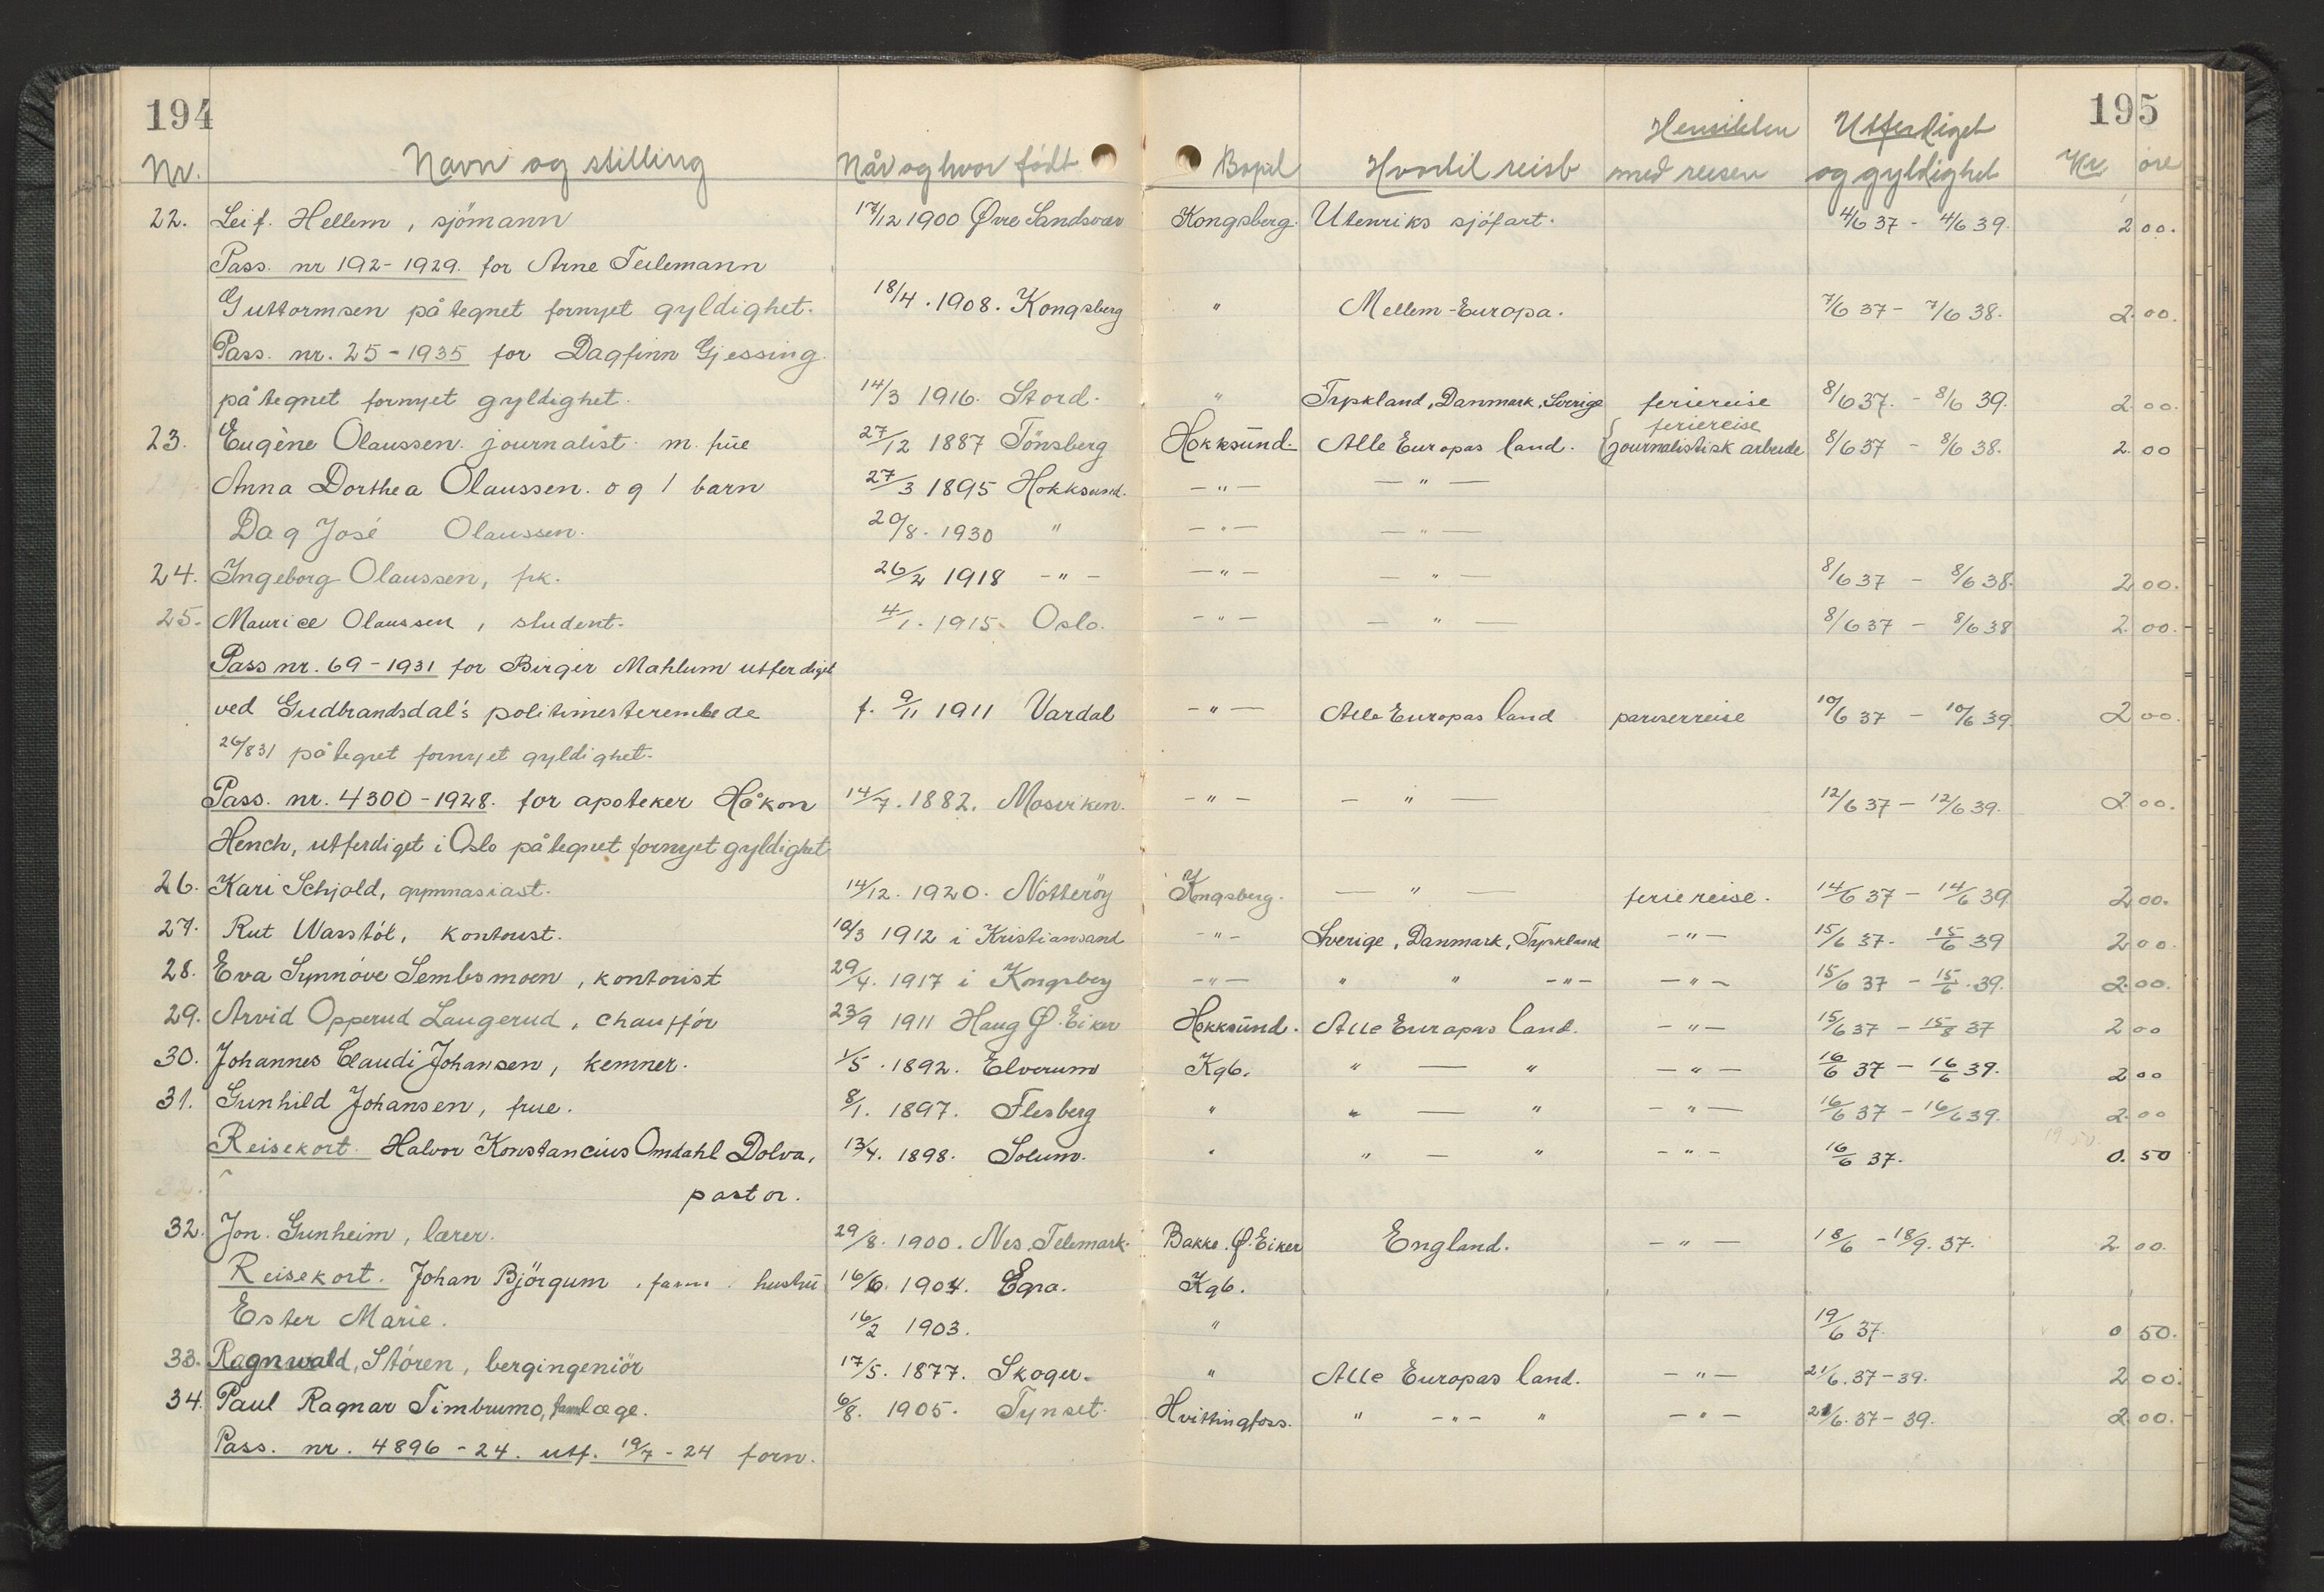 194 195
Nr. Navn og stilling Når og hvor født Bopel Hvortil reist Hensikten med reisen Utferdiget og gyldighet Kr. øre
22. Leif. Hellem, sjømann 17/12 1900 Øvre Sandsvær Kongsberg. Utenriks sjöfart. 4/6 37 - 4/6 39. 2 00.
Pass. nr 192-1929. for Arne Teilemann
Guttormsen påtegnet fornyet gyldighet. 18/4. 1908. Kongsberg " Mellem-Europa. 7/6 37 - 7/6 38. 2. 00.
Pass. nr. 25-1935 for Dagfinn Gjessing.
påtegnet fornyet gyldighet. 14/3 1916. Stord. " Tyskland, Danmark, Sverige feriereise 8/6 37. - 8/6 39. 2. 00.
23. Eugène Olaussen. journalist. m. frue 27/12 1887 Tönsberg Hokksund. Alle Europas land. {feriereise journalistisk arbeide 8/6 37 - 8/6 38. 2. 00
Anna Dorthea Olaussen. og 1 barn 27/3 1895 Hokksund. - " - - " -
Dag José Olaussen. 20/8. 1930 " - " - - " -
24. Ingeborg Olaussen, frk. 26/2 1918 - " - - " - - " - 8/6 37 - 8/6 38. 2 00.
25. Maurice Olaussen, student. 4/1. 1915. Oslo. - " - - " - 8/6 37 - 8/6 38 2. 00.
Pass nr. 69-1931 for Birger Mahlum utferdiget
ved Gudbrandsdal's politimesterembede f. 9/11 1911 Vardal - " - Alle Europas land pariserreise 10/6 37 - 10/6 39. 2 00.
26/8 31 påtegnet fornyet gyldighet.
Pass. nr. 4300-1928. for apoteker Håkon 14/7. 1882. Mosviken. - " - - " - 12/6 37 - 12/6 39. 2 00.
Hench, utferdiget i Oslo påtegnet fornyet gyldighet
26. Kari Schjold, gymnasiast. 14/12. 1920. Nötteröy Kongsberg. - " - feriereise. 14/6 37 - 14/6 39 2 00.
27. Rut Wasstöl, kontorist. 10/3 1912 i Kristiansand - " - Sverige, Danmark, Tyskland - " - 15/6 37. 15/6 39 2 00.
28. Eva Synnöve Sembsmoen, kontorist 29/4. 1917 i Kongsberg - " - " " - " - - " - 15/6 37 - 15/6. 39. 2. 00.
29. Arvid Opperud Laugerud, chauffór 23/9 1911 Haug Ø. Eiker Hokksund. Alle Europas land. - " - 15/6 37 - 15/8 37 2 00
30. Johannes Claudi Johansen, kemner. 1/5. 1892. Elverum Kgb. " - " - " - 16/6 37 - 16/6 39. 2 00
31. Gunhild Johansen, frue. 8/1. 1897. Flesberg " " - " - " - 16/6 37 - 16/6 39. 2. 00
Reisekort. Halvor Konstancius Omdahl Dolva, 13/4. 1898. Solum. " " - " - " - 16/6 37. 0. 50
pastor.
32. Jon. Gunheim, lærer. 29/8. 1900. Nes, Telemark. Bakke. Ø. Eiker England. - " - 18/6 - 18/9. 37. 2 00.
Reisekort. Johan Björgum. hustru 16/6. 1904. Egra. Kgb.
Ester Marie. 16/2 1903. " 19/6 37. 0 50.
33. Ragnwald, Stören, bergingeniör 17/5. 1877. Skoger. " Alle Europas land. - " - 21/6. 37-39. 2 00.
34. Paul Ragnar Timbrumo, tannlæge. 6/8. 1905. Tynset. Hvittingfoss. " - " - " - " - 21/6. 37-39. 2. 00.
Pass. nr. 4896-24. utf. 19/7-24 forn.